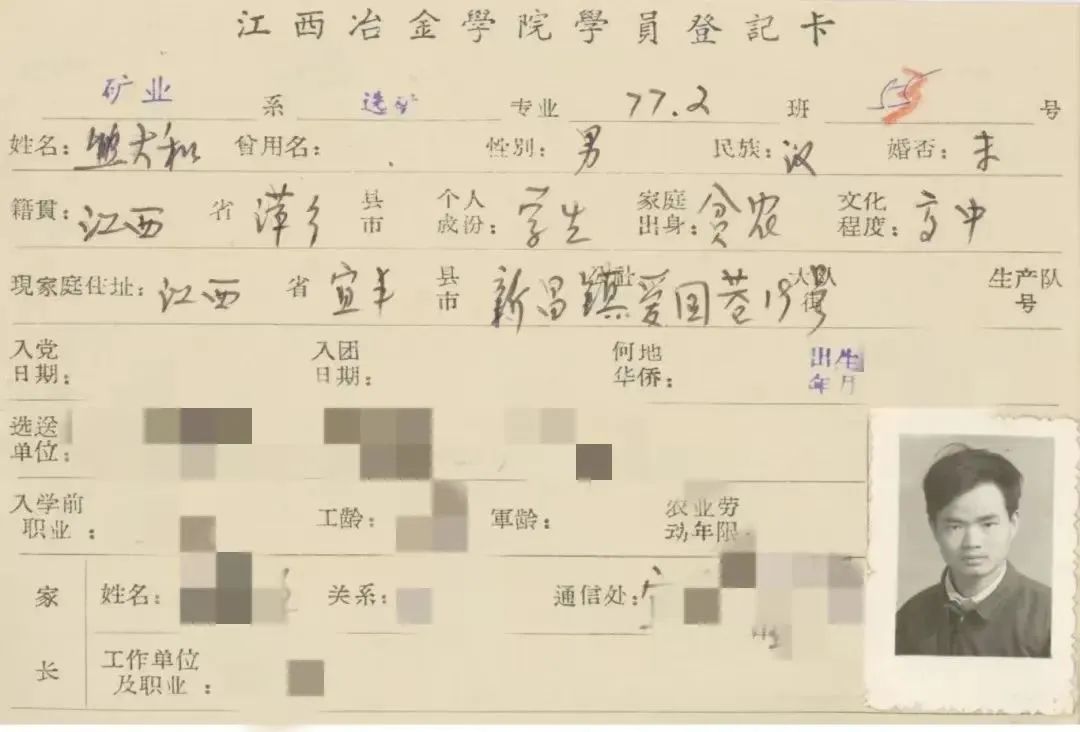 江西冶金學院學員登記卡
矿业 系 选矿 专业 77.2 班 号
姓名: 大和 曾用名: 性别: 男 民族: 汉 婚否: 未
籍貫: 江西 省 萍乡 县市 个人成份: 学生 家庭出身: 贫农 文化程度: 高中
現家庭住址: 江西 省 宜丰 县市 新昌镇爱国巷19号 公社 大队街 生产队号
入党日期: 入团日期: 何地华侨: 出生年月
选送单位:
入学前职业: 工龄: 軍龄: 农业劳动年限
家长 姓名: 关系: 通信处:
工作单位及职业: